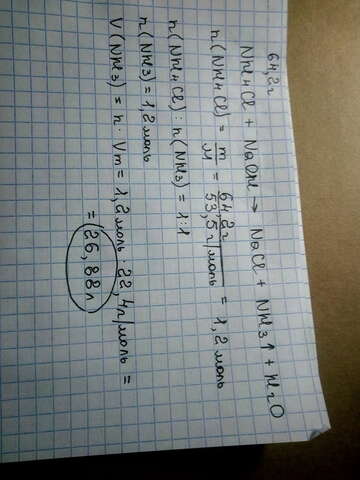 64,2г
NH4Cl + NaOH → NaCl + NH3↑ + H2O
n(NH4Cl) = m/M = 64,2г/53,5г/моль = 1,2моль
n(NH4Cl) : n(NH3) = 1:1
n(NH3) = 1,2моль
V(NH3) = n · Vm = 1,2моль · 22,4л/моль =
= 26,88л